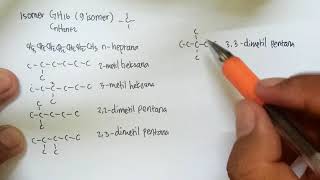 Isomer C7H16 (9 isomer)
CnH2n+2
CH3 CH2 CH2 CH2 CH2 CH2 CH3 n-heptana
C-C-C-C-C-C 2-metil heksana
C
C-C-C-C-C-C 3-metil heksana
C
C-C-C-C-C 2,2-dimetil pentana
C
C-C-C-C-C 2,3-dimetil pentana
C C
C
C-C-C-C 3,3-dimetil pentana
C
C